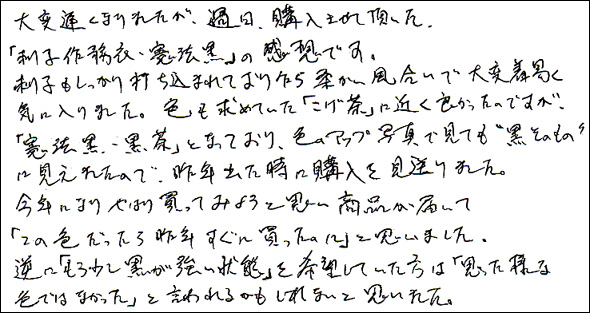 大変遅くなりましたが、過日、購入させて頂いた、
「刺子作務衣・憲法黒」の感想です。
刺子もしっかり打ち込まれており乍ら柔かい風合いで大変着易く
気に入りました。色も求めていた「こげ茶」に近く良かったのですが、
「憲法黒・黒茶」となっており、色のアップ写真で見ても“黒そのもの”
に見えたので、昨年出た時は購入を見送りました。
今年になりやはり買ってみようと思い商品が届いて
「この色だったら昨年すぐに買ったのに」と思いました。
逆に「もう少し黒が強い状態」を希望していた方は「思った様な
色ではなかった」と言われるかもしれないと思いました。